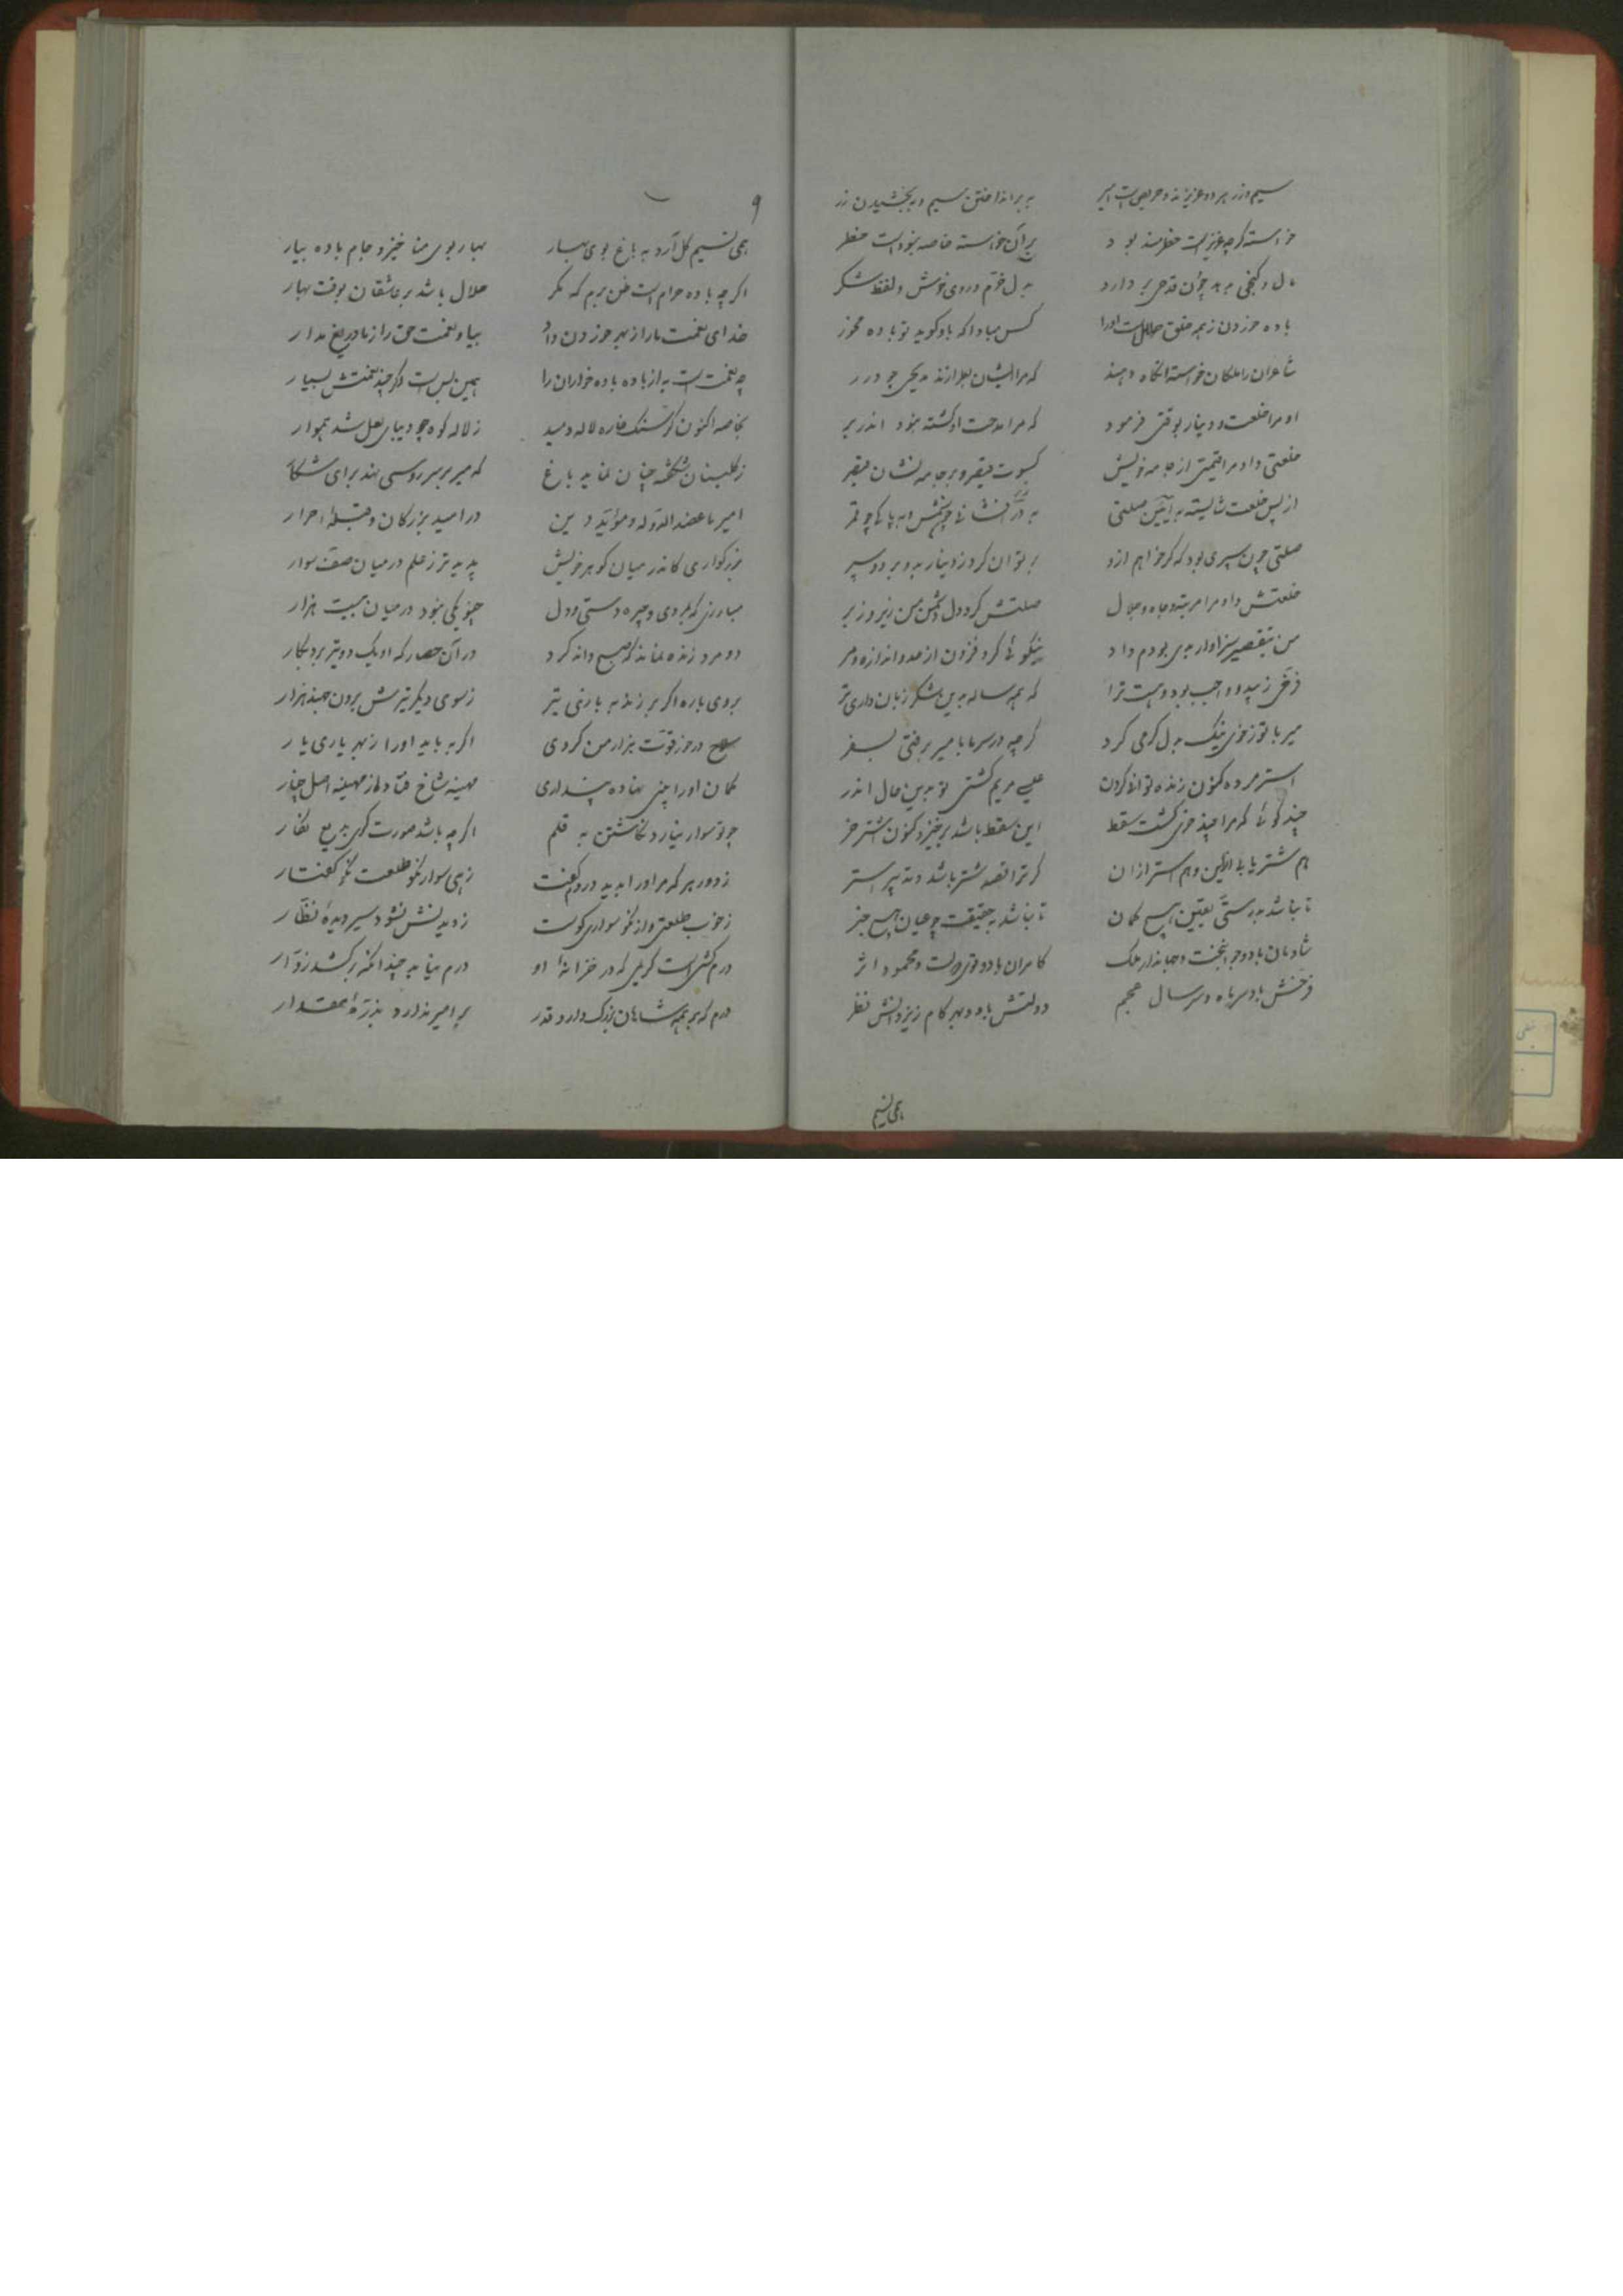 سیم و زر هر دو عزیزند و حریص است امیر به بر انداختن سیم و به بخشیدن زر
خواسته گر چه عزیز است خطرمند بود بر آن خواسته خاصه نبود است خطر
مال و گنجی بدهد چون قدحی بر دارد به دل خرم و روی خوش و لفظ شکر
باده خوردن ز همه خلق حلال است او را کس مبادا که بادو گوید تو باده مخور
شاعران را ملکان خواسته آنگاه دهند که مر ایشان
او مرا خلعت و دینار بوقتی فرمود که مرا مدحت او گشته نبود اندر بر
خلعتی داد مرا قیمتی از جامه خویش کسوت قیصر و بر جامه نشان قیصر
از پس خلعت شایسته به آیین صلتی به درآن نشانها چو شمس و به پاکی چو قمر
صلتی چون سپری بود که گر خواهم ازو بر توان کرد ز دینار به دو بر دو سپر
خلعتش داد مرا مرتبت و جاه و جلال صلتش کرد دل دشمن من زیر و زبر
من بتقصیر سزاوار بدی بودم داد نیکوئها کرد فزون از حد و اندازه و مر
فرخی زیبد و واجب بود و هست ترا که همه ساله بدین شکر زبان داری تر
میر با تو ز خوی نیک به دل گرمی کرد گر چه در سرما با میر برفتی بسفر
استر مرده کنون زنده توانی کردن عیسی مریم گشتی تو بدین حال اندر
چند گوئی که مرا چند خر گشت سقط این سقط باشد برخیز و کنون اشتر خر
هم شتر یابی از این و هم استر از آن گر ترا قصد شتر باشد و تدبیر استر
تا نباشد به درستی چو یقین هیچ گمان تا نباشد به حقیقت چو عیان هیچ خبر
شادمان باد و جوانبخت و جهاندار ملک کامران باد و قوی دولت و محمود اثر
فرخش باد سر ماه و سر سال عجم دولتش باد و بهر کام ز یزدانش نظر
همی نسیم
۹
همی نسیم گل آرد به باغ بوی بهار بهار بوی منا خیز و جام باده بیار
اگر چه باده حرام است ظن برم که مگر حلال باشد بر عاشقان بوقت بهار
خدای نعمت ما را ز بهر خوردن داد بیا و نعمت حق را ز ما دریغ مدار
چه نعمت است به از باده باده خواران را همین بس است و گر چند نعمتش بسیار
بخاصه اکنون کز سنگ خاره لاله دمید ز لاله کوه چو دیبای لعل شد هموار
ز گلبنان شکفته چنان نماید باغ که میر بر سر روسی نهد برای شکار
امیر ما عضدالدوله و مؤید دین در امید بزرگان و قبله احرار
بزرگواری کاندر میان گوهر خویش پدید تر ز علم در میان صف سوار
مبارزی که بمردی و چیره دستی و دل چنو یکی نبود در میان بیست هزار
دو مرد زنده نماند که صلح داند کرد در آن حصار که او یک دو تیر برد بکار
بروی باره اگر بر زند به بازی تیر ز سوی دیگر تیرش برون جهد ز حصار
سلاح در خور قوت هزار من کردی اگر به باید او را ز بهر یاری یار
کمان او را بینی نهاده پنداری مهینه شاخ فتاد از مهینه اصل چنار
چو تو سوار نیارد نگاشتن به قلم اگر چه باشد صورت گری بدیع نگار
ز دور هر که مر او را بدید در دم گفت زهی سوار نکو طلعت نکو گفتار
ز خوب طلعتی و از نکو سواری کوست ز دیدنش نشود سیر دیده نظار
درم کشی است کریمی که در خزانه او درم نیابد چندانکه بر کشد زوار
درم که بر همه شاهان بزرگ دارد قدر بر امیر ندارد به ذره ای مقدار